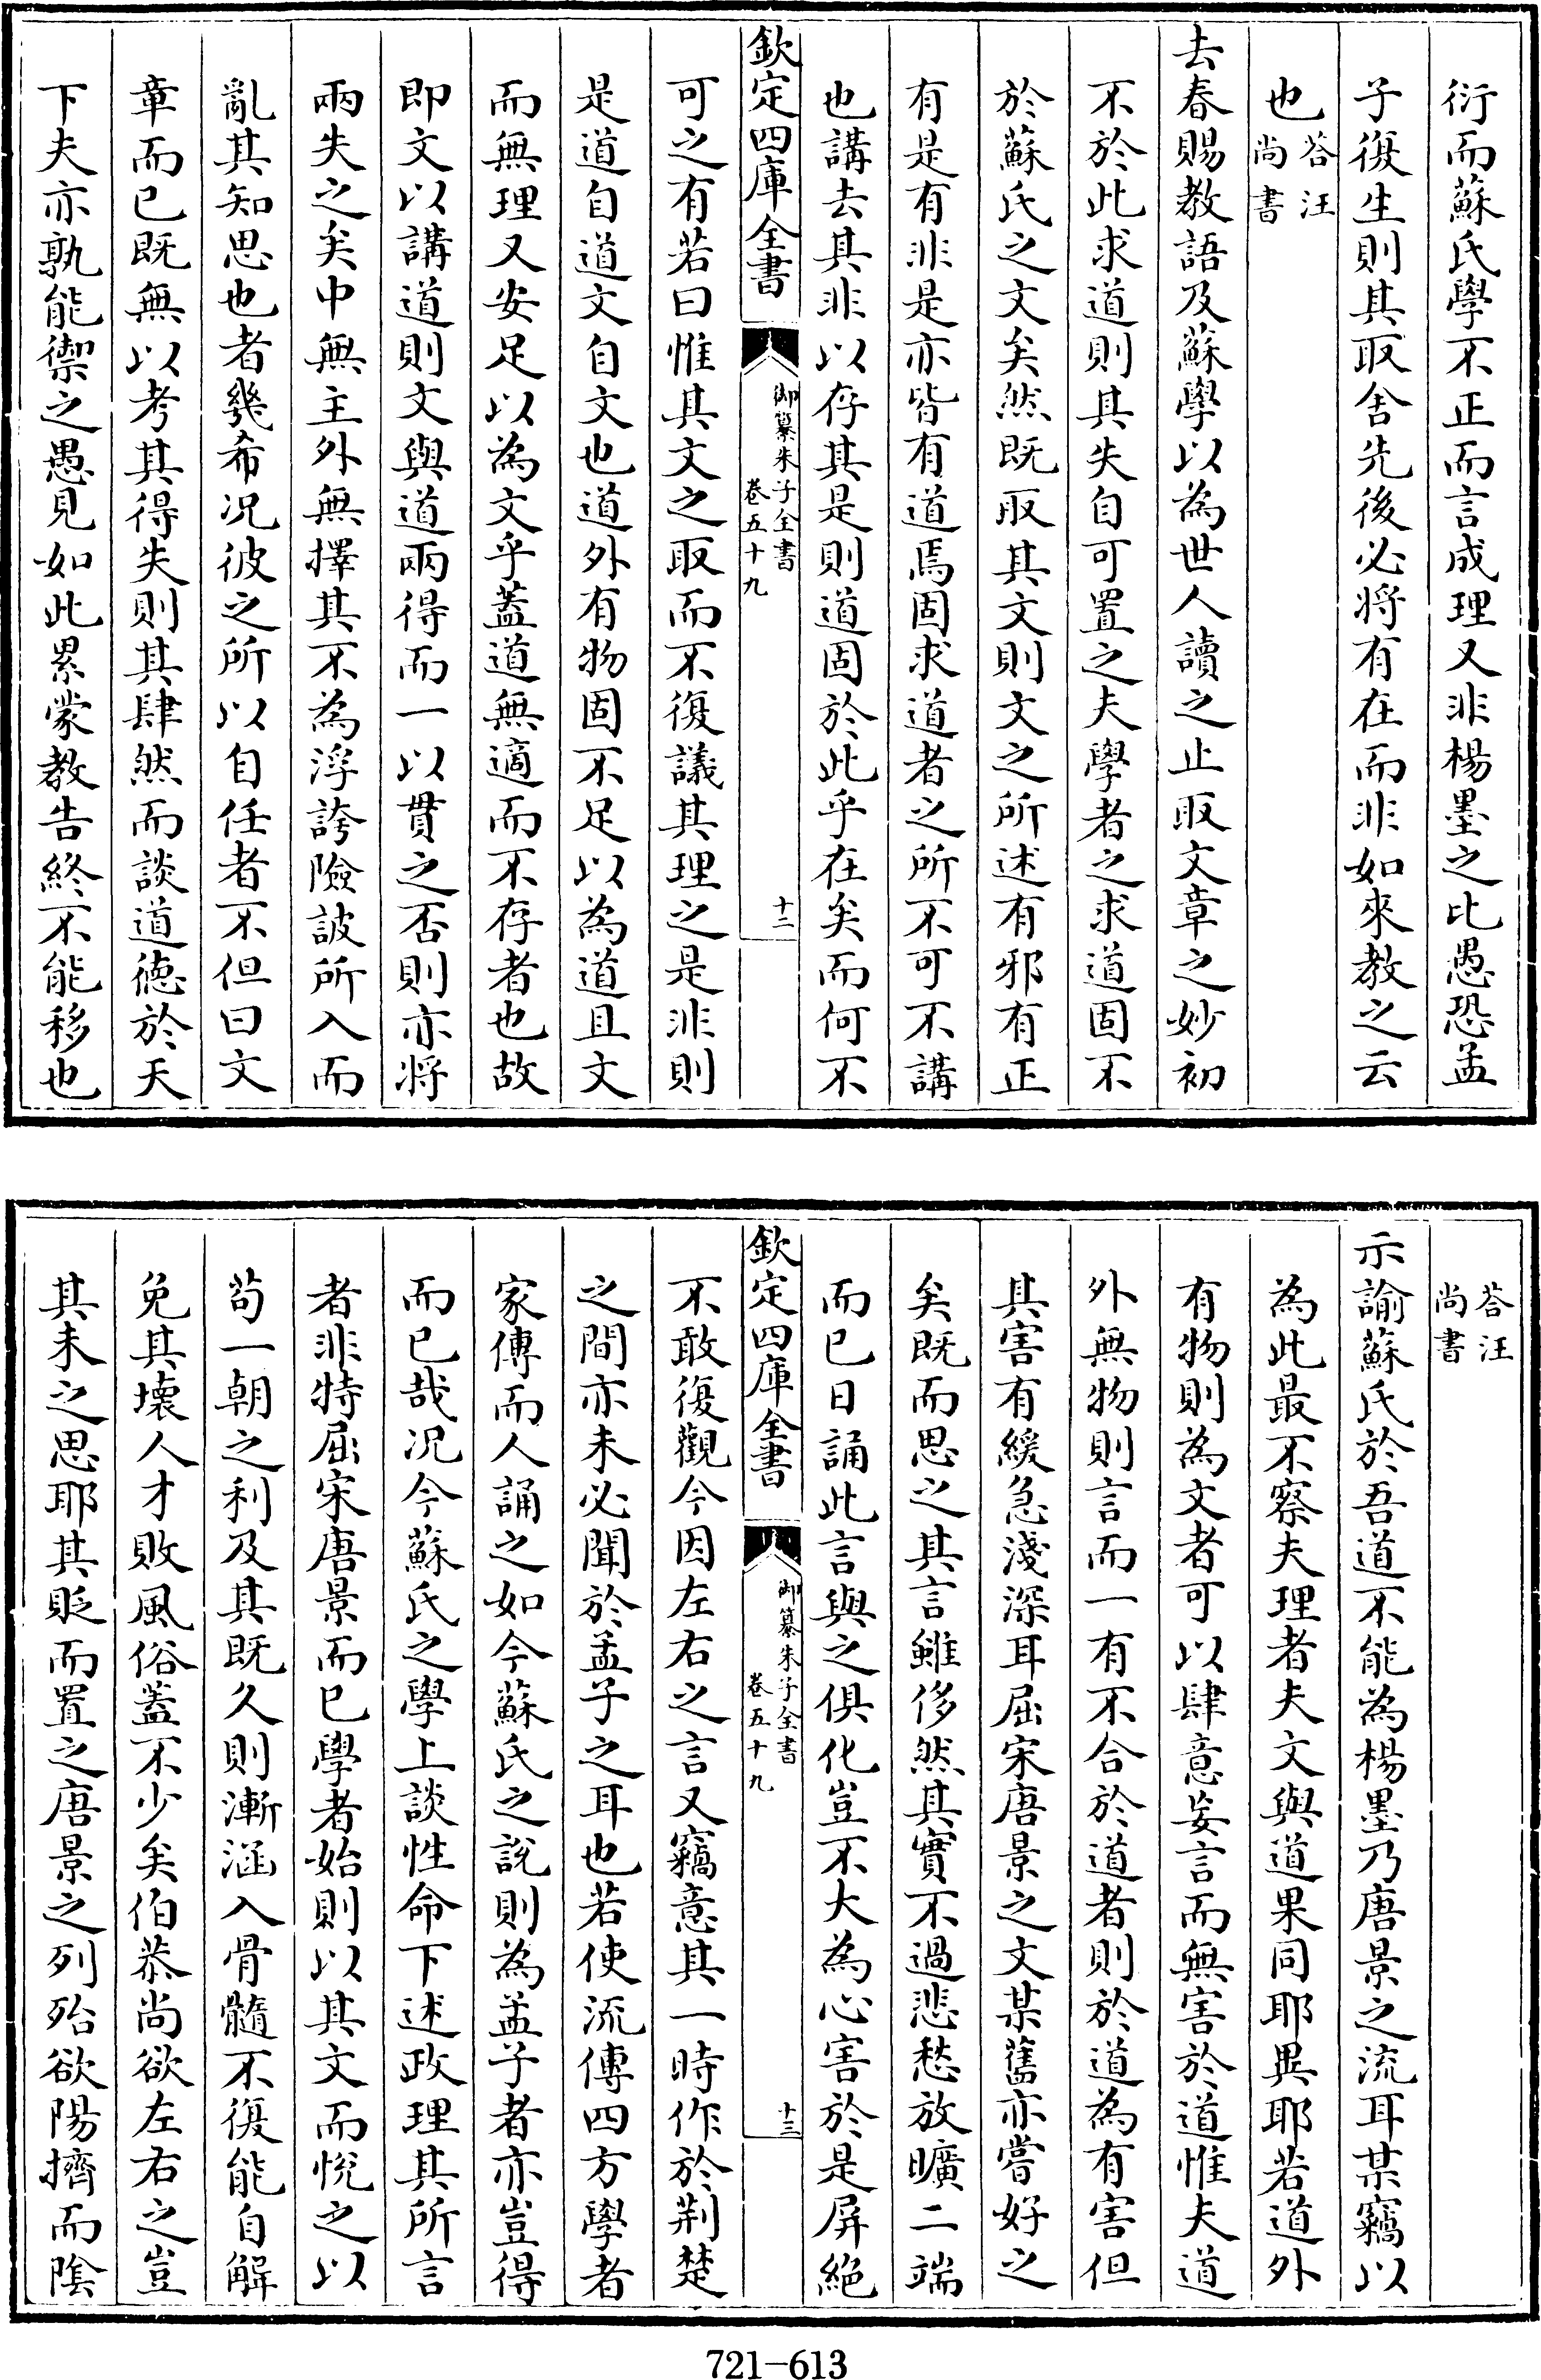 衍而蘇氏學不正而言成理又非楊墨之比愚恐孟
子復生則其取舍先後必將有在而非如來教之云
也答汪尚書
去春賜教語及蘇學以為世人讀之止取文章之妙初
不於此求道則其失自可置之夫學者之求道固不
於蘇氏之文矣然既取其文則文之所述有邪有正
有是有非是亦皆有道焉固求道者之所不可不講
也講去其非以存其是則道固於此乎在矣而何不
欽定四庫全書
御纂朱子全書
卷五十九
十二
可之有若曰惟其文之取而不復議其理之是非則
是道自道文自文也道外有物固不足以為道且文
而無理又安足以為文乎蓋道無適而不存者也故
即文以講道則文與道兩得而一以貫之否則亦將
兩失之矣中無主外無擇其不為浮誇險詖所入而
亂其知思也者幾希况彼之所以自任者不但曰文
章而已既無以考其得失則其肆然而談道德於天
下夫亦孰能禦之愚見如此累蒙教告終不能移也
答汪尚書
示諭蘇氏於吾道不能為楊墨乃唐景之流耳某竊以
為此最不察夫理者夫文與道果同耶異耶若道外
有物則為文者可以肆意妄言而無害於道惟夫道
外無物則言而一有不合於道者則於道為有害但
其害有緩急淺深耳屈宋唐景之文某舊亦嘗好之
矣既而思之其言雖侈然其實不過悲愁放曠二端
而已日誦此言與之俱化豈不大為心害於是屏絕
欽定四庫全書
御纂朱子全書
卷五十九
十三
不敢復觀今因左右之言又竊意其一時作於荆楚
之間亦未必聞於孟子之耳也若使流傳四方學者
家傳而人誦之如今蘇氏之說則為孟子者亦豈得
而已哉况今蘇氏之學上談性命下述政理其所言
者非特屈宋唐景而已學者始則以其文而悅之以
苟一朝之利及其既久則漸涵入骨髓不復能自解
免其壞人才敗風俗蓋不少矣伯恭尚欲左右之豈
其未之思耶其貶而置之唐景之列殆欲陽擠而陰
721-613